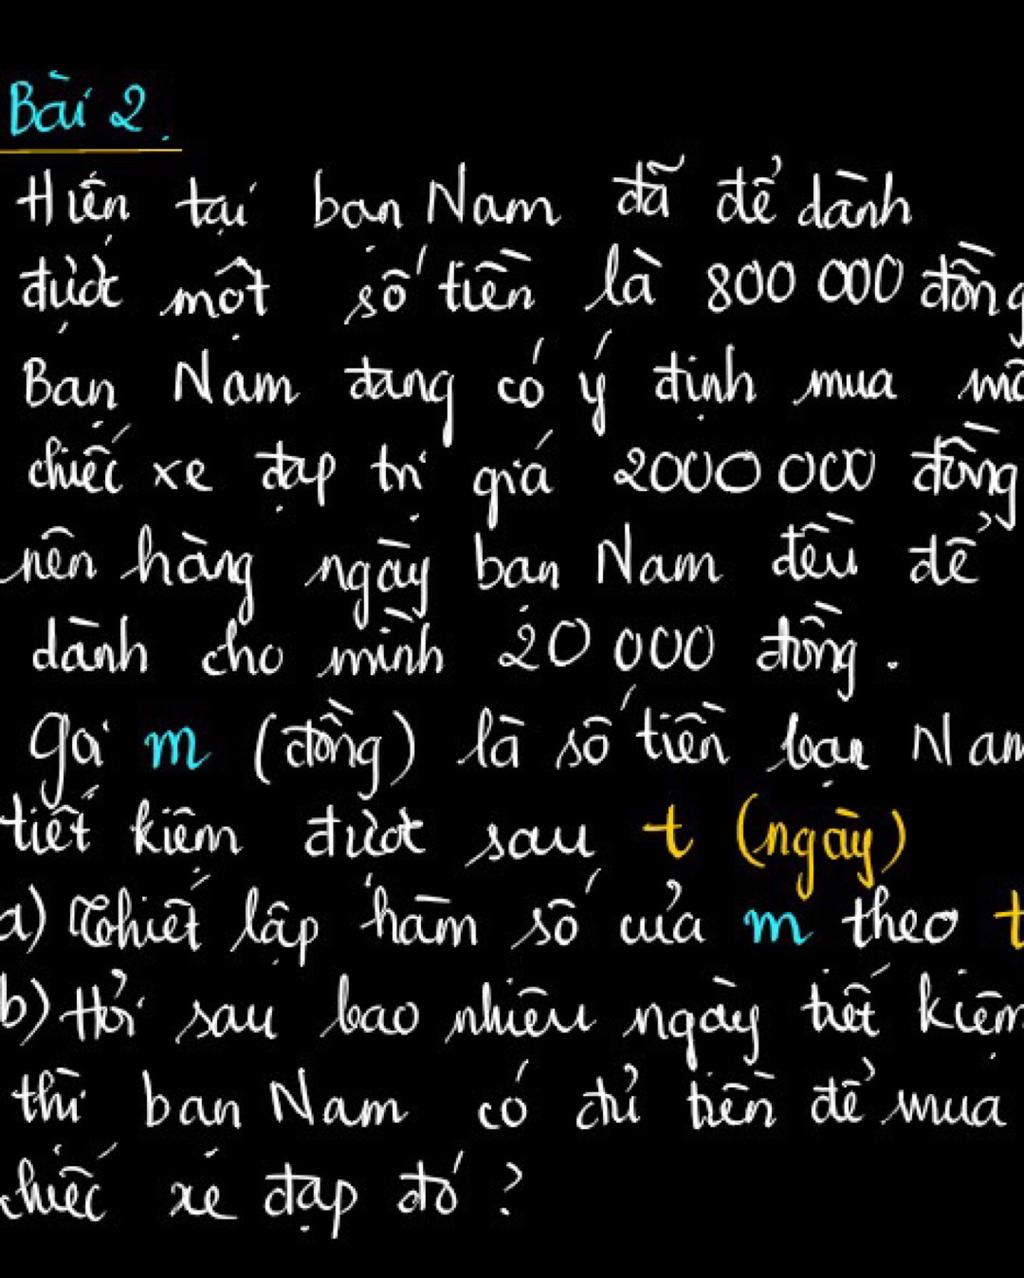 Bài 2.
Hiện tại bạn Nam đã để dành
được một số tiền là 800 000 đồng
Bạn Nam đang có ý định mua
chiếc xe đạp trị giá 2000 000 đồng
nên hàng ngày bạn Nam đều để
dành cho mình 20 000 đồng.
gọi m (đồng) là số tiền bạn Nam
tiết kiệm được sau t (ngày)
a) Thiết lập hàm số của m theo t
b) Hỏi sau bao nhiêu ngày tiết kiệm
thì bạn Nam có đủ tiền để mua
chiếc xe đạp đó?